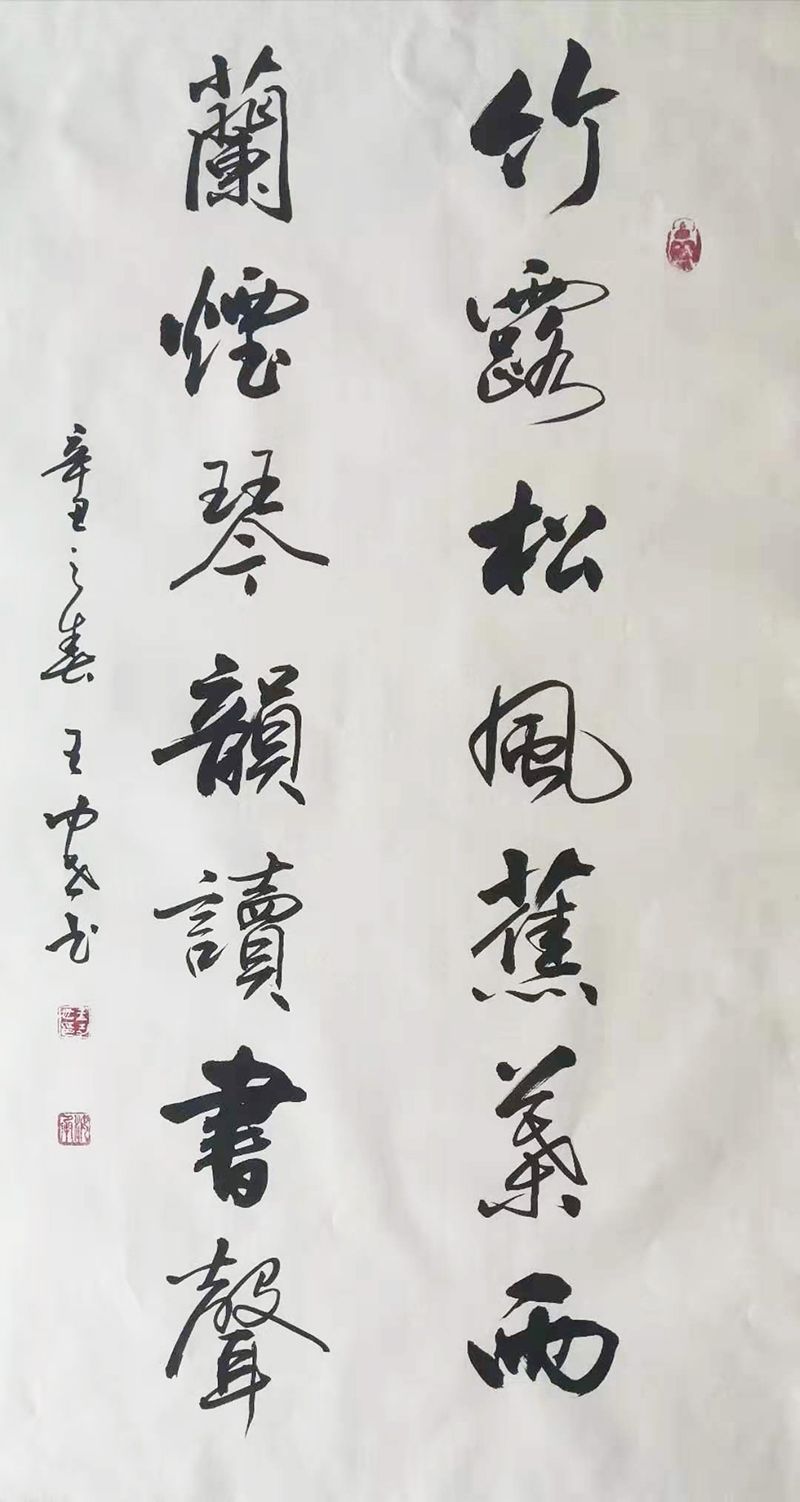 竹露松風蕉葉雨
蘭煙琴韻讀書聲
辛丑之春王守書